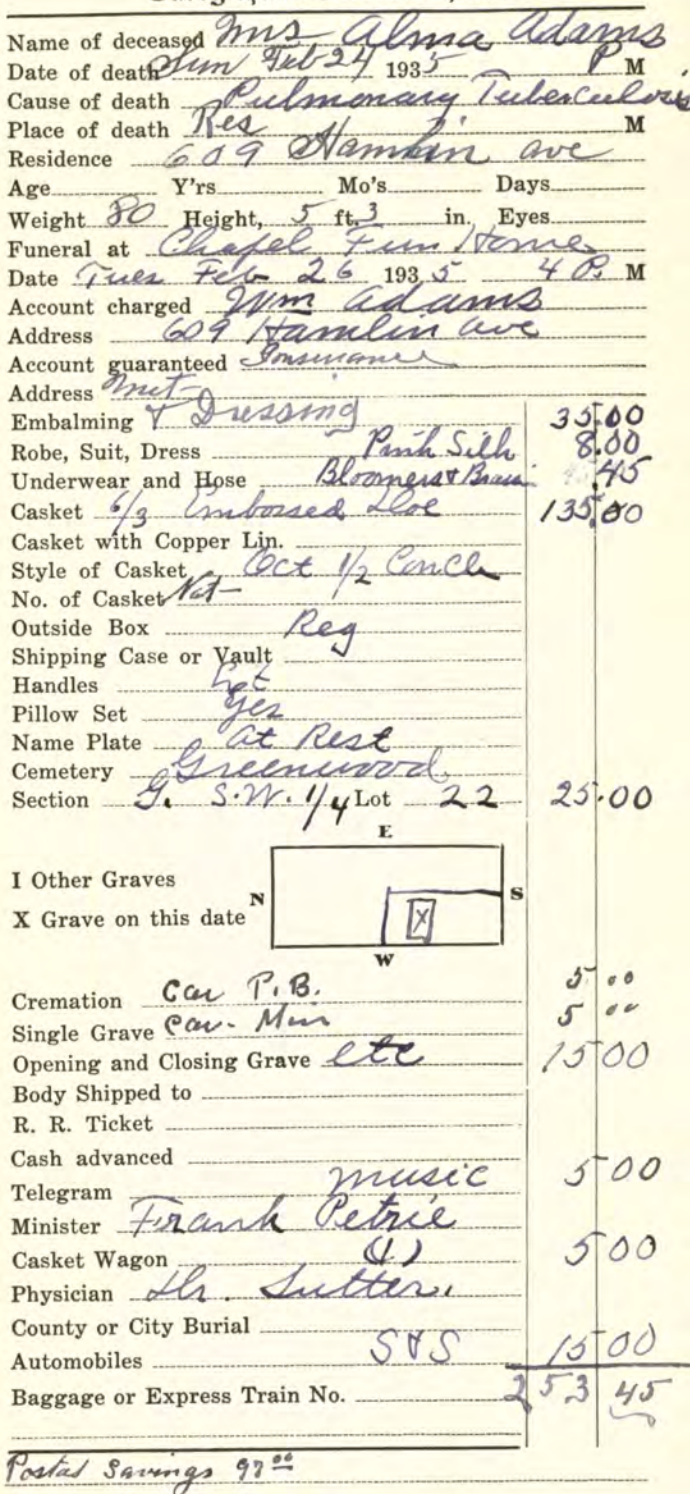 Name of deceased Mrs Alma Adams
Date of death Sun Feb 24 1935 P M
Cause of death Pulmonary Tuberculosis
Place of death Res M
Residence 609 Hamlin ave
Age Y'rs Mo's Days
Weight 80 Height, 5 ft. 3 in. Eyes
Funeral at Chapel Fun Home
Date Tues Feb 26 1935 4 P. M
Account charged Wm Adams
Address 609 Hamlin ave
Account guaranteed Insurance
Address
Embalming & Dressing 35.00
Robe, Suit, Dress Pink Silk 8.00
Underwear and Hose Bloomers & Brass .45
Casket 6/3 Embossed Doe 135.00
Casket with Copper Lin.
Style of Casket Oct 1/2 Couch
No. of Casket Nat-
Outside Box Reg
Shipping Case or Vault
Handles
Pillow Set Yes
Name Plate At Rest
Cemetery Greenwood
Section G. S.W. 1/4 Lot 22 25.00
E
I Other Graves
N S
X Grave on this date X
W
Cremation Car P.B. 5 00
Single Grave Car- Min 5 00
Opening and Closing Grave etc 15 00
Body Shipped to
R. R. Ticket
Cash advanced
Telegram music 5 00
Minister Frank Petrie
Casket Wagon (1) 5 00
Physician Dr. Sutter.
County or City Burial
Automobiles S & S 15 00
Baggage or Express Train No. 253 45
Postal Savings 97 00